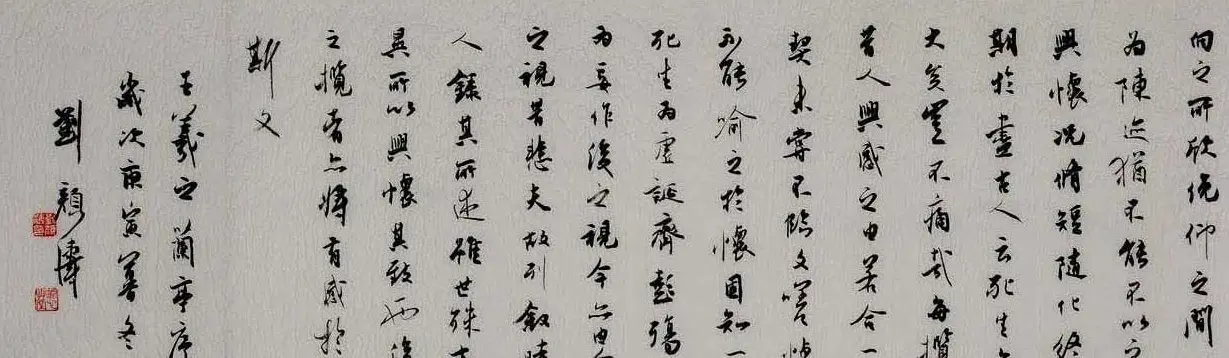 向之所欣俛仰之間
為陳迹猶不能不以之
興懷况脩短隨化終
期於盡古人云死生亦
大矣豈不痛哉每攬
昔人興感之由若合一
契未嘗不臨文嗟悼
不能喻之於懷固知一
死生為虛誕齊彭殤
為妄作後之視今亦由今
之視昔悲夫故列敘時
人錄其所述雖世殊事
異所以興懷其致一也後
之攬者亦將有感於
斯文
王羲之蘭亭序
歲次庚寅暮冬
劉顏濤